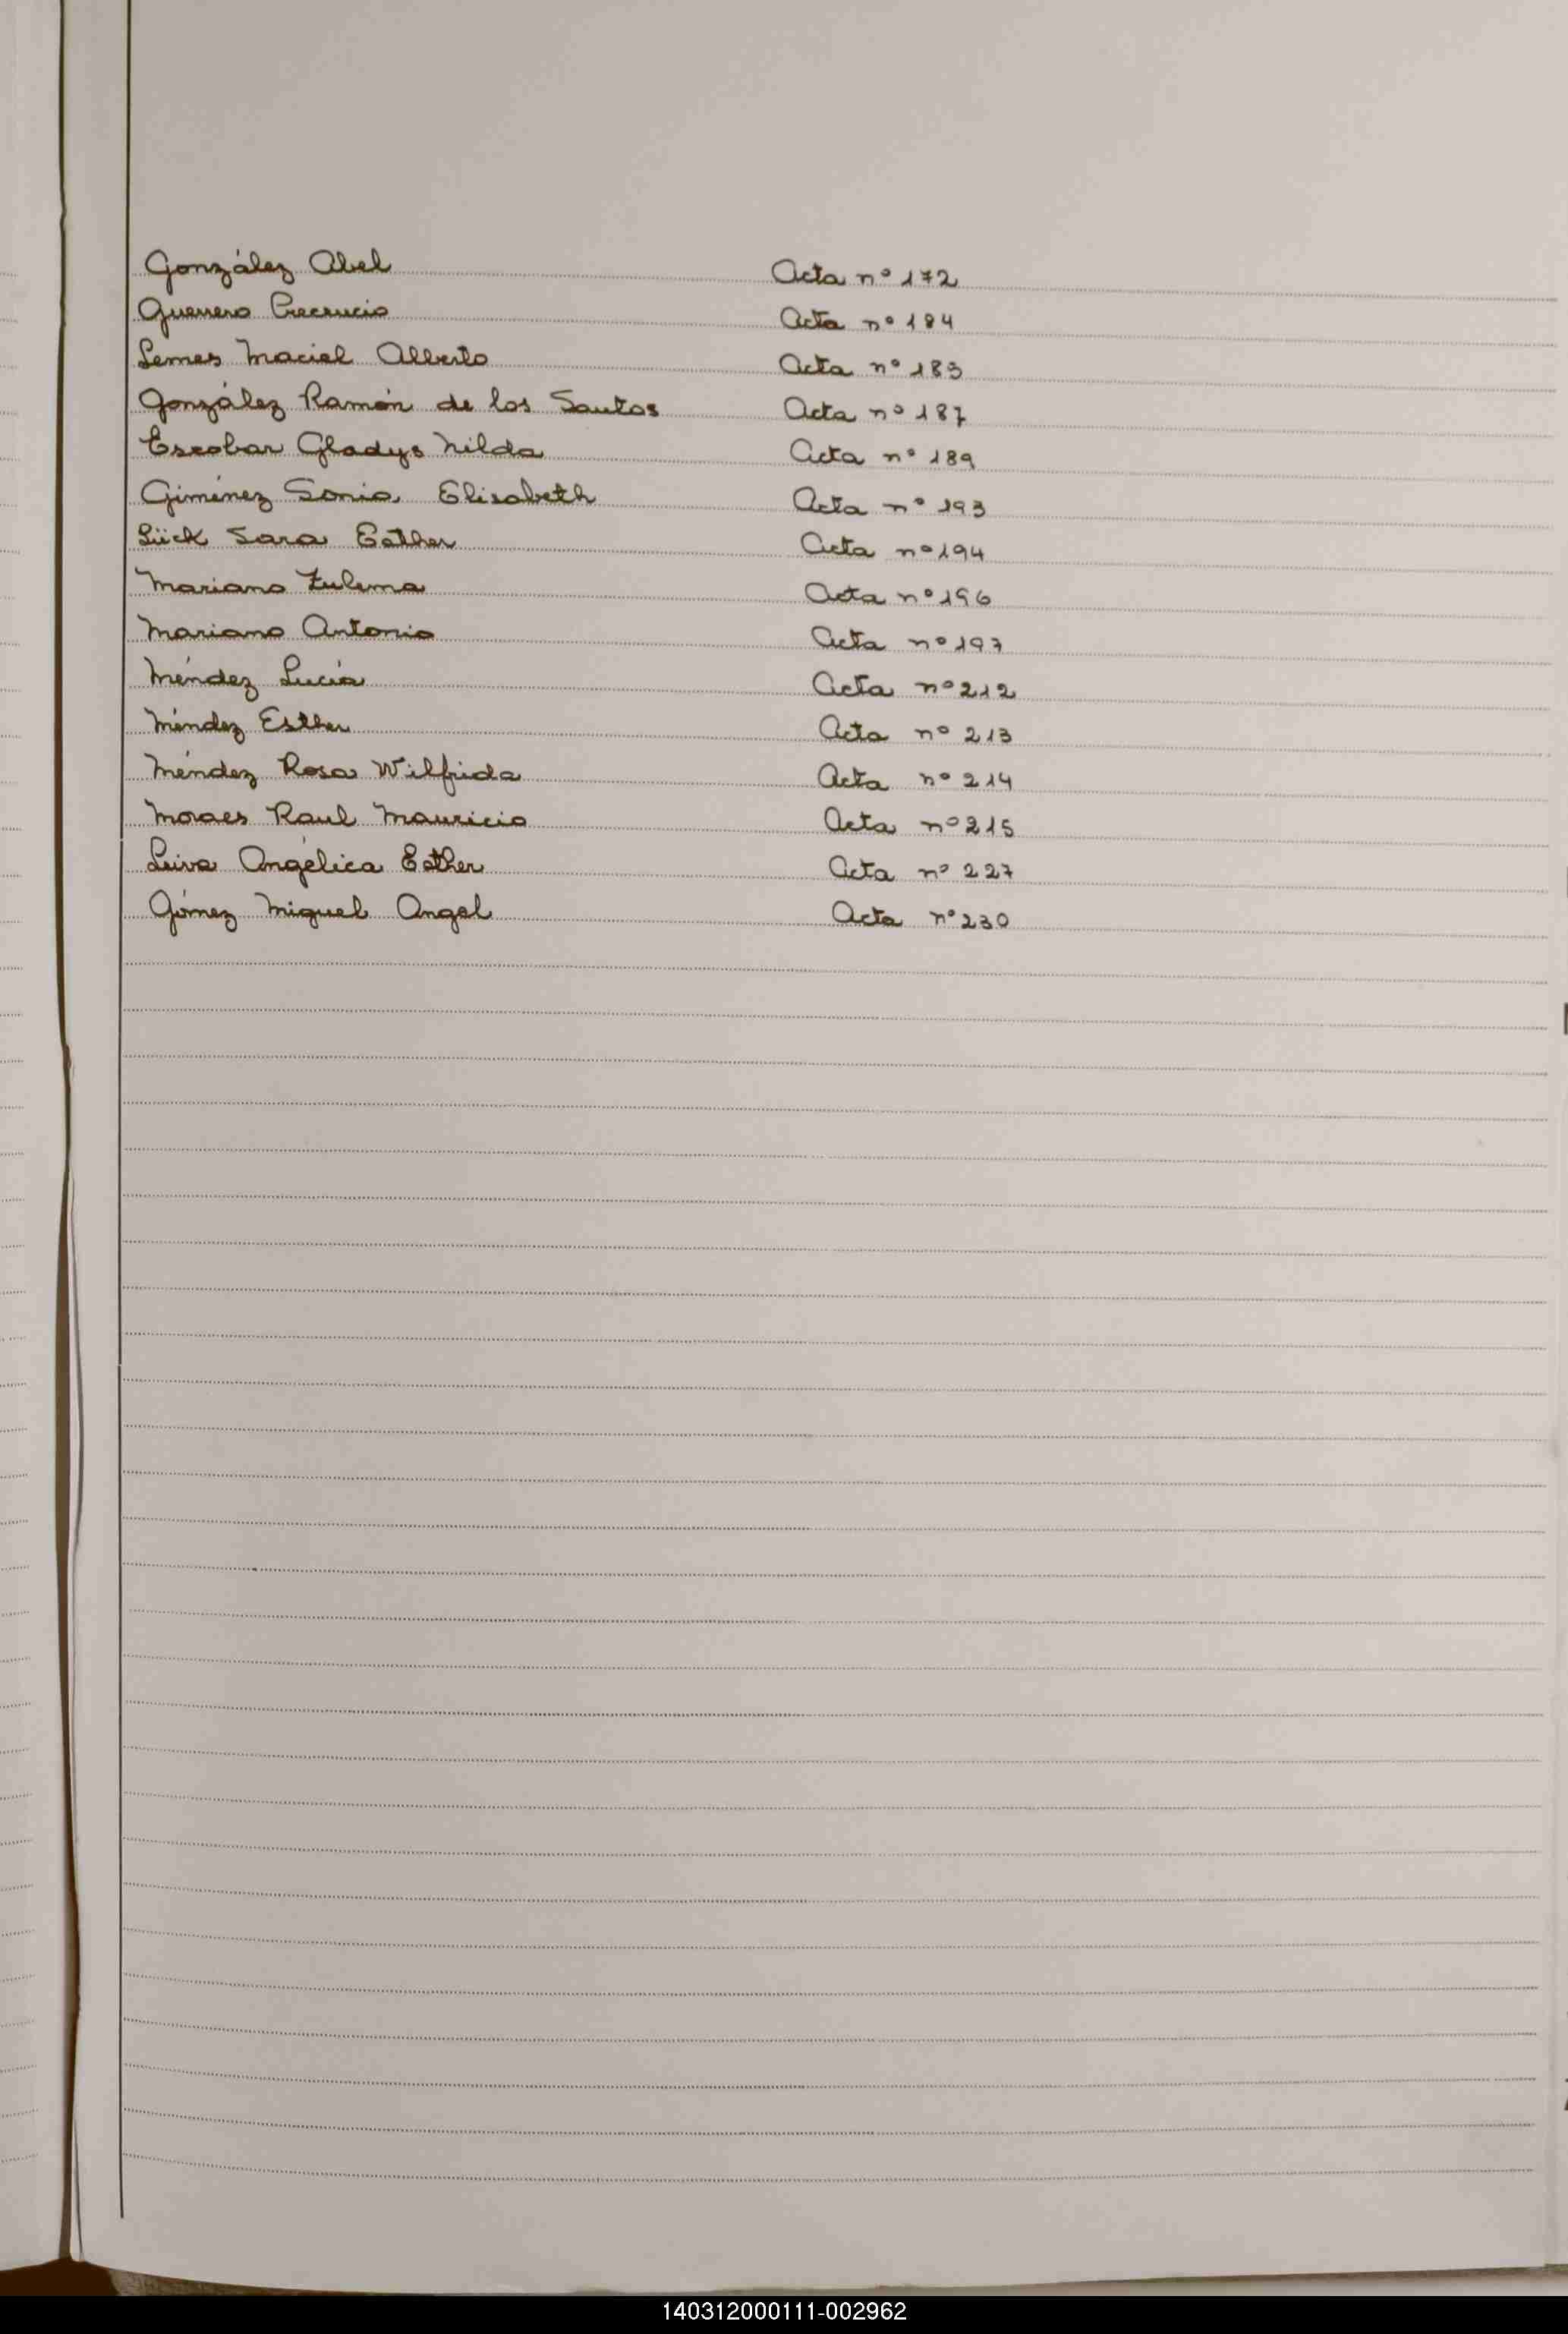 González Abel Acta nº 172
Guerrero Acta nº 184
Lemes Maciel Alberto Acta nº 183
González Ramón de los Santos Acta nº 187
Escobar Gladys Nilda Acta nº 189
Giménez Sonia Elisabeth Acta nº 193
Lück Sara Esther Acta nº 194
Mariano Zulema Acta nº 196
Mariano Antonio Acta nº 197
Méndez Lucía Acta nº 212
Méndez Esther Acta nº 213
Méndez Rosa Wilfrida Acta nº 214
Moraes Raul Mauricio Acta nº 215
Leiva Angélica Esther Acta nº 227
Gómez Miguel Angel Acta nº 230
140312000111-002962